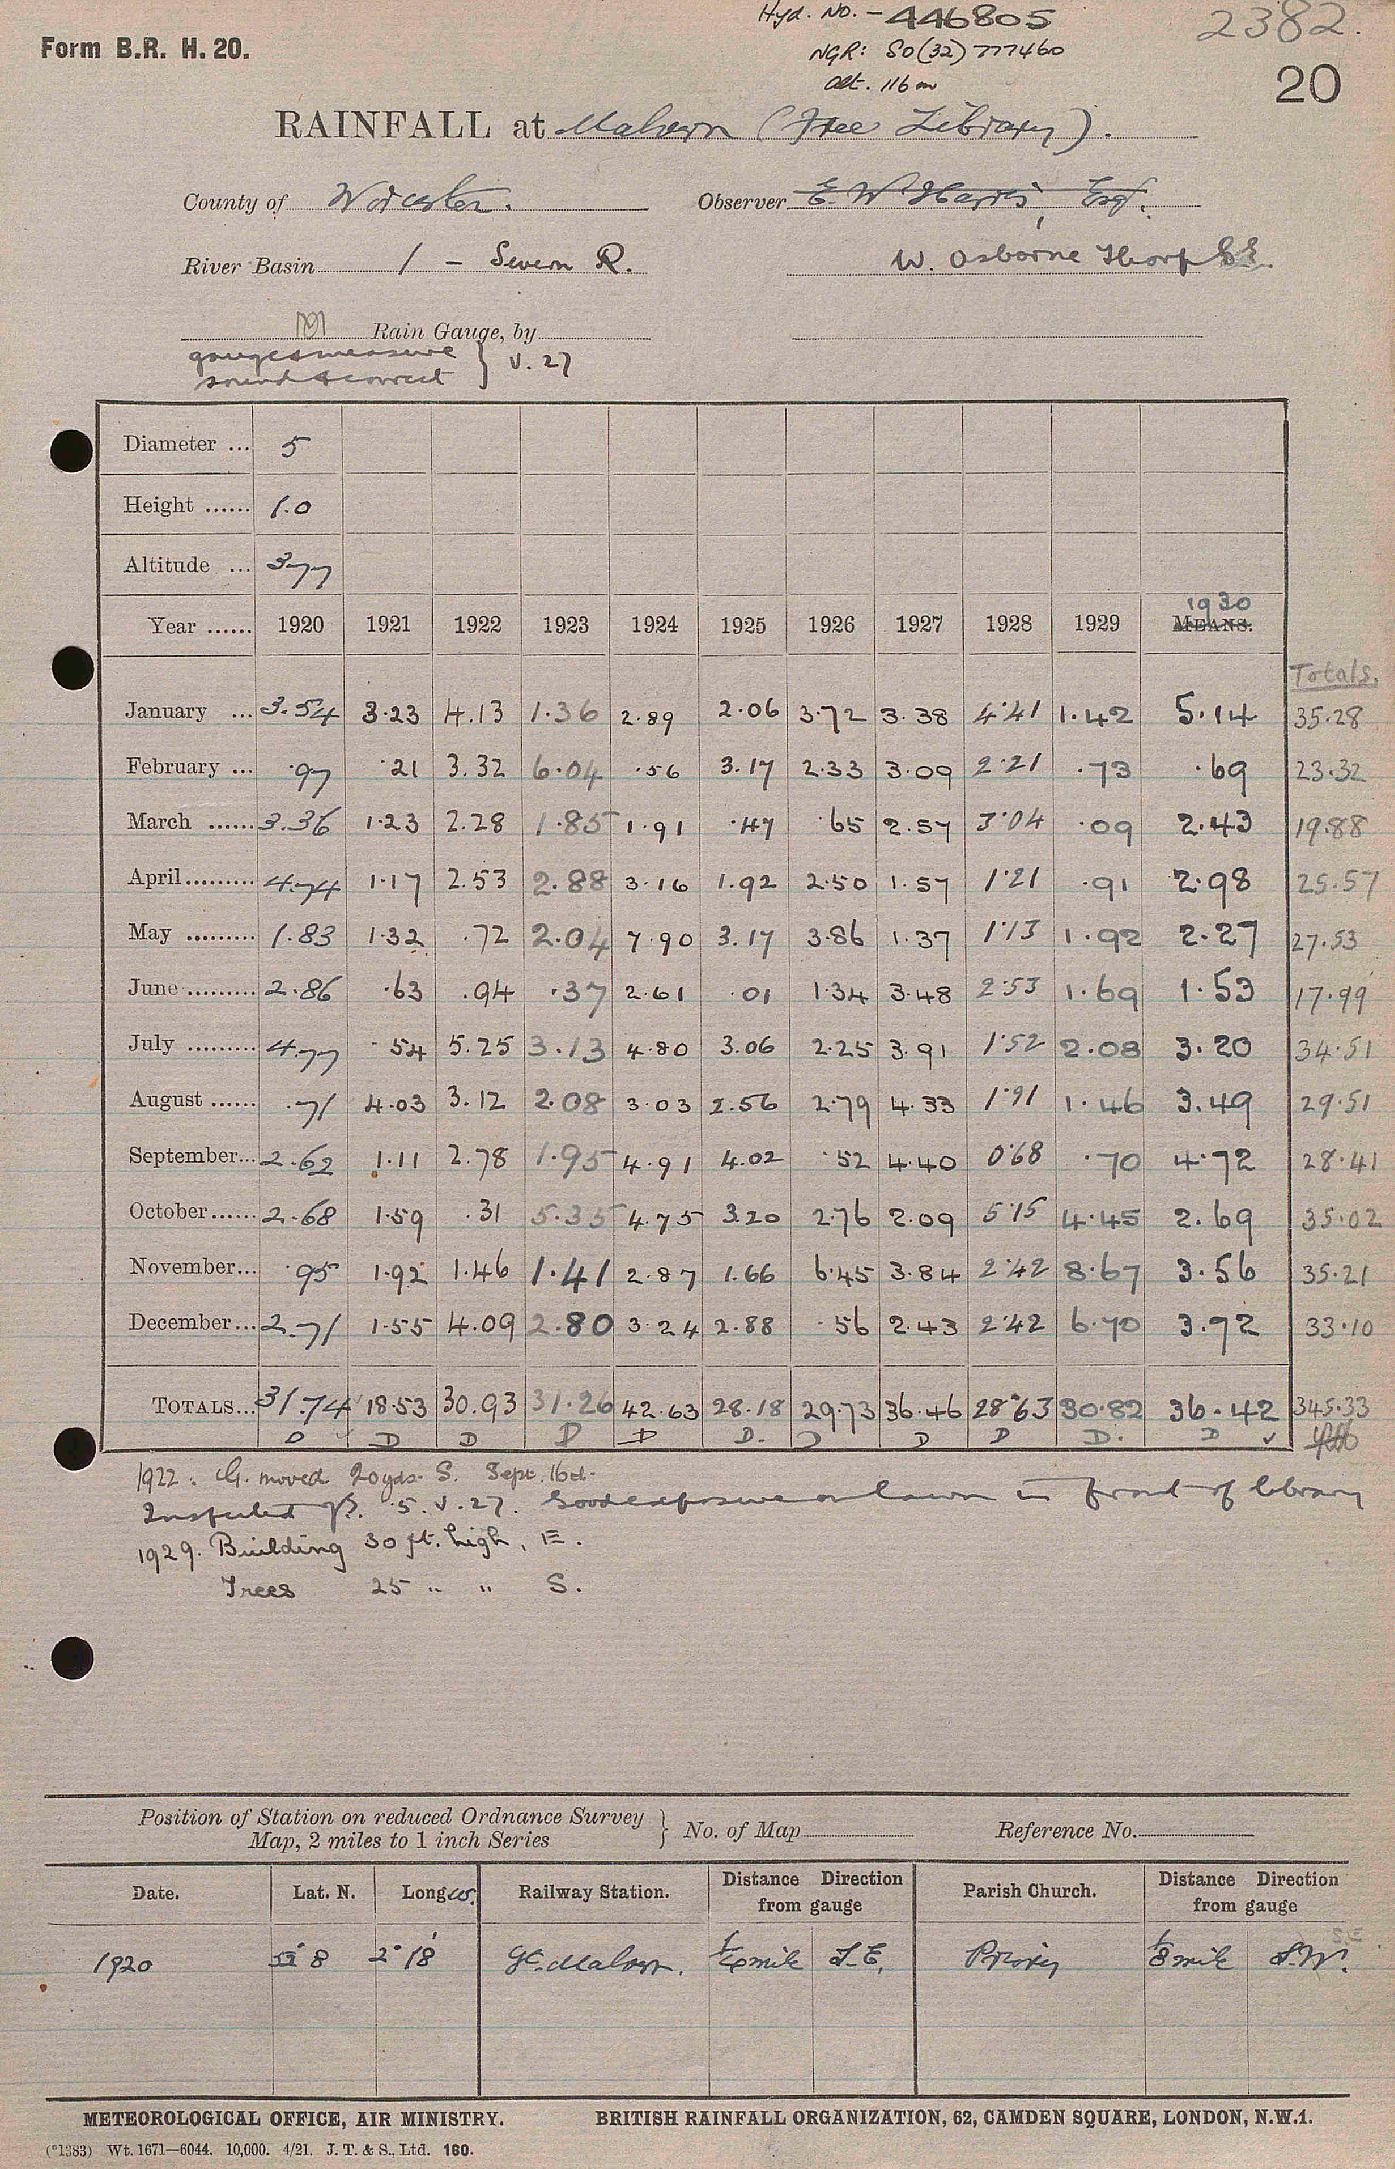 Hyd. No. - 446805
2382.
Form B.R. H. 20.
NGR: SO(32) 777460
alt. 116 m
20
RAINFALL at Malvern (Free Library).
County of Worcester. Observer E. W. Harris, Esq.
River Basin 1 - Severn R. W. Osborne Thorp C.E.
Rain Gauge, by
gauge & measure
sound & correct } V. 27
Diameter ... 5
Height ...... 1.0
Altitude ... 377
Year ...... 1920 1921 1922 1923 1924 1925 1926 1927 1928 1929 MEANS. 1930
Totals.
January ... 3.54 3.23 4.13 1.36 2.89 2.06 3.72 3.38 4.41 1.42 5.14 35.28
February ... .97 .21 3.32 6.04 .56 3.17 2.33 3.09 2.21 .73 .69 23.32
March ...... 3.36 1.23 2.28 1.85 1.91 .47 .65 2.57 3.04 .09 2.43 19.88
April ......... 4.74 1.17 2.53 2.88 3.16 1.92 2.50 1.57 1.21 .91 2.98 25.57
May ......... 1.83 1.32 .72 2.04 7.90 3.17 3.86 1.37 1.13 1.92 2.27 27.53
June ......... 2.86 .63 .94 .37 2.61 .01 1.34 3.48 2.53 1.69 1.53 17.99
July ......... 4.77 .54 5.25 3.13 4.80 3.06 2.25 3.91 1.52 2.08 3.20 34.51
August ...... .71 4.03 3.12 2.08 3.03 2.56 2.79 4.33 1.91 1.46 3.49 29.51
September... 2.62 1.11 2.78 1.95 4.91 4.02 .52 4.40 0.68 .70 4.72 28.41
October...... 2.68 1.59 .31 5.35 4.75 3.20 2.76 2.09 5.15 4.45 2.69 35.02
November... .95 1.92 1.46 1.41 2.87 1.66 6.45 3.84 2.42 8.67 3.56 35.21
December... 2.71 1.55 4.09 2.80 3.24 2.88 .56 2.43 2.42 6.70 3.72 33.10
TOTALS... 31.74 18.53 30.93 31.26 42.63 28.18 29.73 36.46 28.63 30.82 36.42 345.33
D D D D D D. D D D D. D ✓
1922. G. moved 20 yds. S. Sept. 16d.
Inspected 5.V.27. Good exposure on lawn in front of library
1929. Building 30 ft. high, E.
Trees 25 " " S.
Position of Station on reduced Ordnance Survey
Map, 2 miles to 1 inch Series } No. of Map Reference No.
Date. Lat. N. Long W. Railway Station. Distance Direction from gauge Parish Church. Distance Direction from gauge
S.E
1920 52° 8 2° 18' Gt. Malvern. ¼ mile S.E. Priory ⅛ mile S.W.
METEOROLOGICAL OFFICE, AIR MINISTRY. BRITISH RAINFALL ORGANIZATION, 62, CAMDEN SQUARE, LONDON, N.W.1.
(*1383) Wt. 1671—6044. 10,000. 4/21. J. T. & S., Ltd. 160.